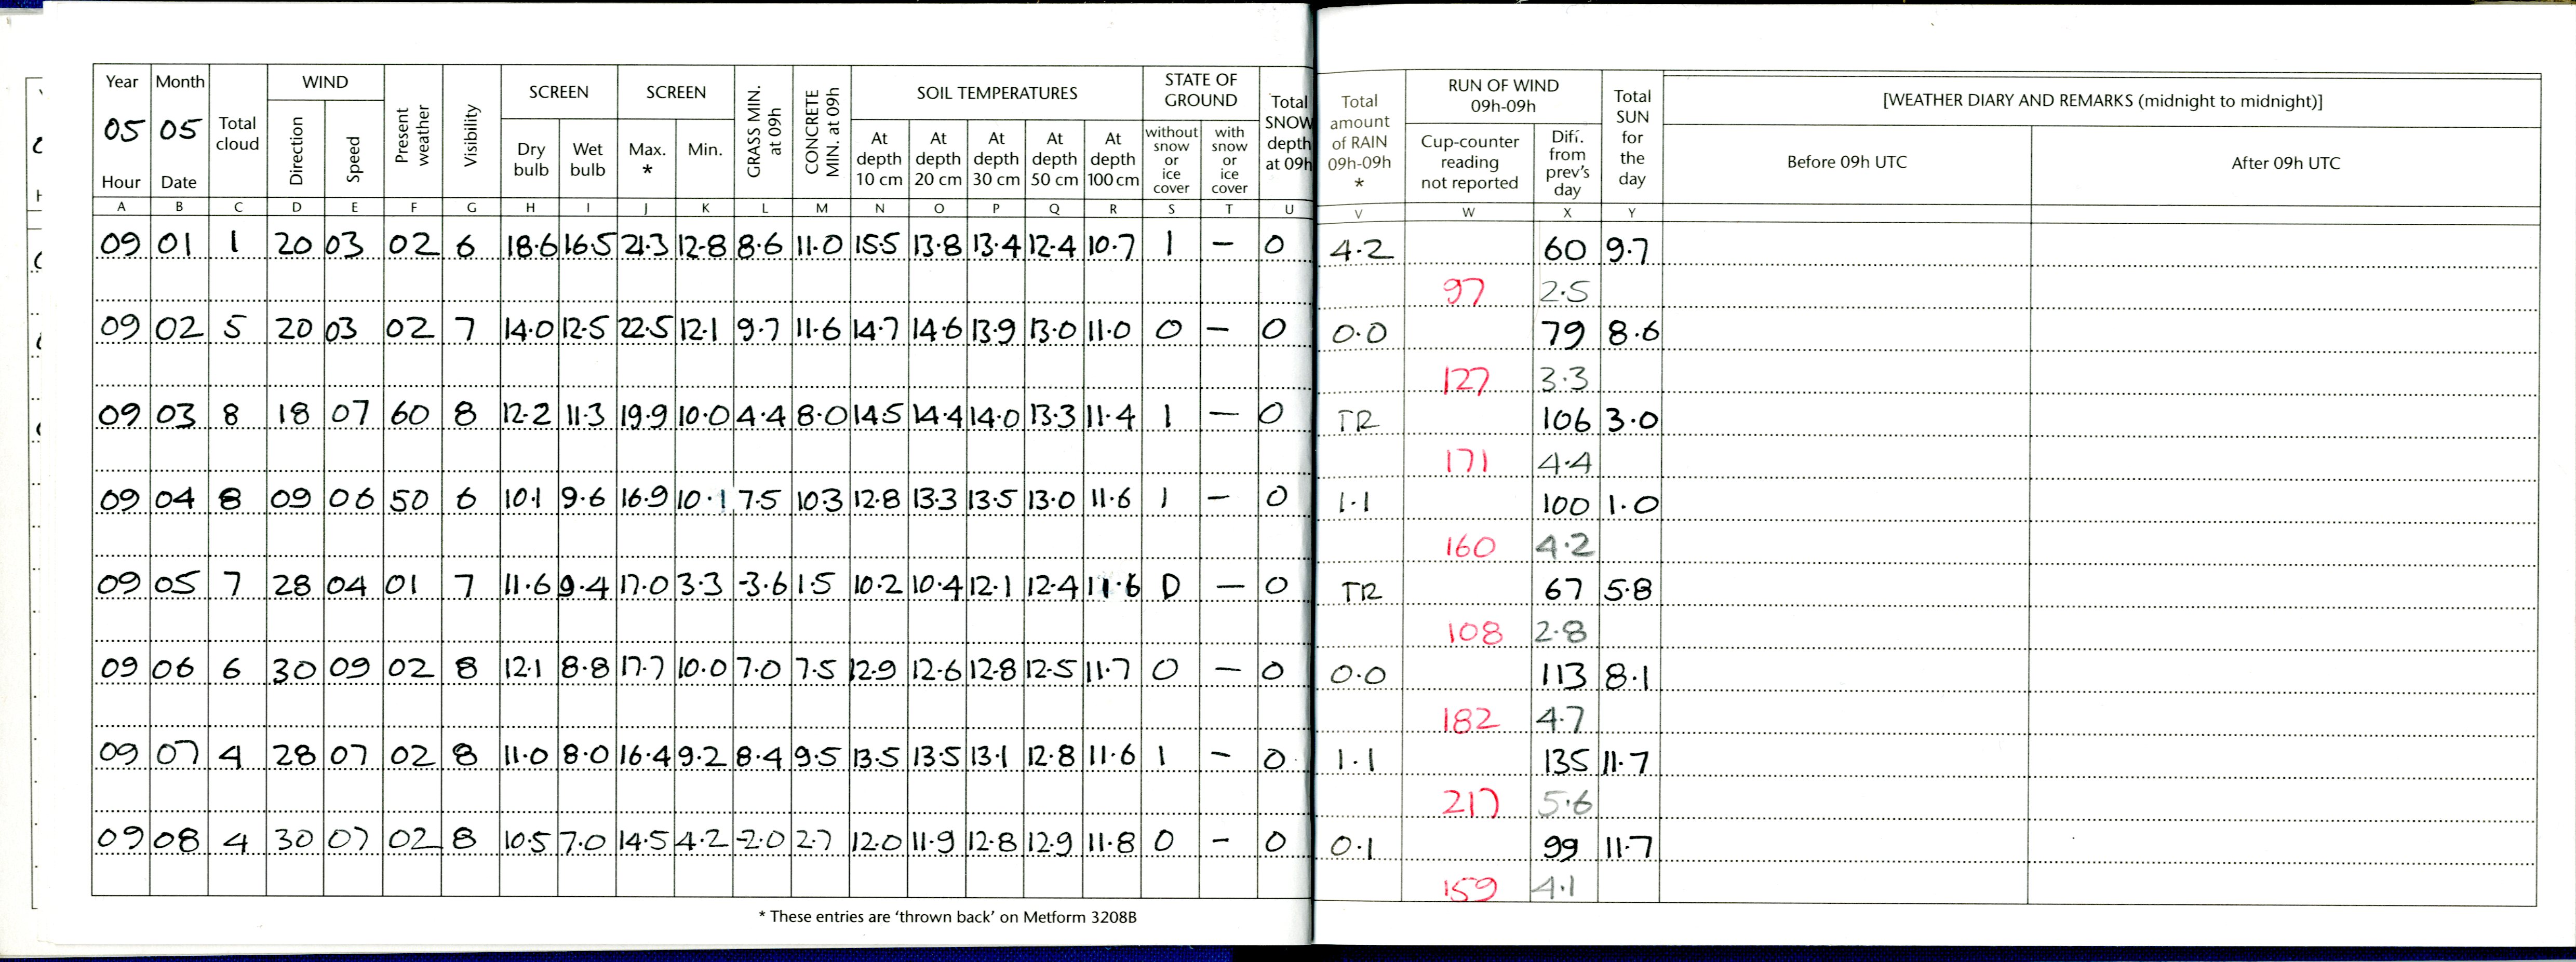 Year Month Total cloud WIND Present weather Visibility SCREEN SCREEN GRASS MIN. at 09h CONCRETE MIN. at 09h SOIL TEMPERATURES STATE OF GROUND Total SNOW depth at 09h Total amount of RAIN 09h-09h * RUN OF WIND 09h-09h Total SUN for the day [WEATHER DIARY AND REMARKS (midnight to midnight)]
05 05
Hour Date Direction Speed Dry bulb Wet bulb Max. * Min. At depth 10 cm At depth 20 cm At depth 30 cm At depth 50 cm At depth 100 cm without snow or ice cover with snow or ice cover Cup-counter reading not reported Dif. from prev's day Before 09h UTC After 09h UTC
A B C D E F G H I J K L M N O P Q R S T U V W X Y
09 01 1 20 03 02 6 18.6 16.5 21.3 12.8 8.6 11.0 15.5 13.8 13.4 12.4 10.7 1 – 0 4.2 60 9.7
97 2.5
09 02 5 20 03 02 7 14.0 12.5 22.5 12.1 9.7 11.6 14.7 14.6 13.9 13.0 11.0 0 – 0 0.0 79 8.6
127 3.3
09 03 8 18 07 60 8 12.2 11.3 19.9 10.0 4.4 8.0 14.5 14.4 14.0 13.3 11.4 1 – 0 TR 106 3.0
171 4.4
09 04 8 09 06 50 6 10.1 9.6 16.9 10.1 7.5 10.3 12.8 13.3 13.5 13.0 11.6 1 – 0 1.1 100 1.0
160 4.2
09 05 7 28 04 01 7 11.6 9.4 17.0 3.3 -3.6 1.5 10.2 10.4 12.1 12.4 11.6 0 – 0 TR 67 5.8
108 2.8
09 06 6 30 09 02 8 12.1 8.8 17.7 10.0 7.0 7.5 12.9 12.6 12.8 12.5 11.7 0 – 0 0.0 113 8.1
182 4.7
09 07 4 28 07 02 8 11.0 8.0 16.4 9.2 8.4 9.5 13.5 13.5 13.1 12.8 11.6 1 – 0 1.1 135 11.7
217 5.6
09 08 4 30 07 02 8 10.5 7.0 14.5 4.2 -2.0 2.7 12.0 11.9 12.8 12.9 11.8 0 – 0 0.1 99 11.7
159 4.1
* These entries are 'thrown back' on Metform 3208B